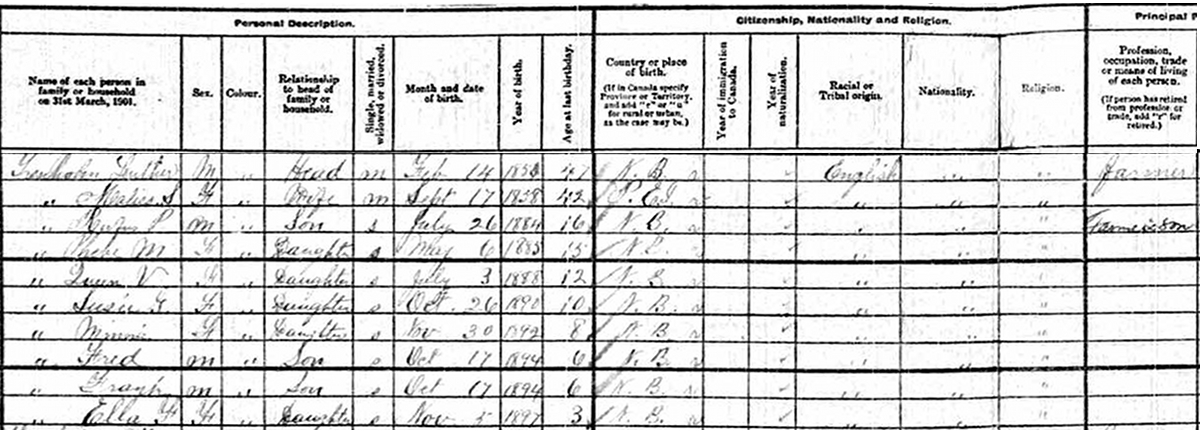 Personal Description.
Citizenship, Nationality and Religion.
Principal
Name of each person in family or household on 31st March, 1901.
Sex.
Colour.
Relationship to head of family or household.
Single, married, widowed or divorced.
Month and date of birth.
Year of birth.
Age at last birthday.
Country or place of birth.
(If in Canada specify Province or Territory, and add "r" or "u" for rural or urban, as the case may be.)
Year of immigration to Canada.
Year of naturalization.
Racial or Tribal origin.
Nationality.
Religion.
Profession, occupation, trade or means of living of each person.
(If person has retired from profession or trade, add "r" for retired.)
M " Head m Feb 14 47 N. B. r English " " Farmer
" F " Wife m Sept 17 1858 42 P. E. I. r " " "
" P m " Son s July 26 1884 16 N. B. r " " " Farmer's son
" M F " Daughter s May 6 1885 15 N. B. r " " "
" V F " Daughter s July 3 1888 12 N. B. r " " "
" Susie F " Daughter s Oct 26 1890 10 N. B. r " " "
" Minnie F " Daughter s Nov 30 1892 8 N. B. r " " "
" Fred m " Son s Oct 17 1894 6 N. B. r " " "
" m " Son s Oct 17 1894 6 N. B. r "
" Ella F F " Daughter s Nov 5 1897 3 N. B. r "